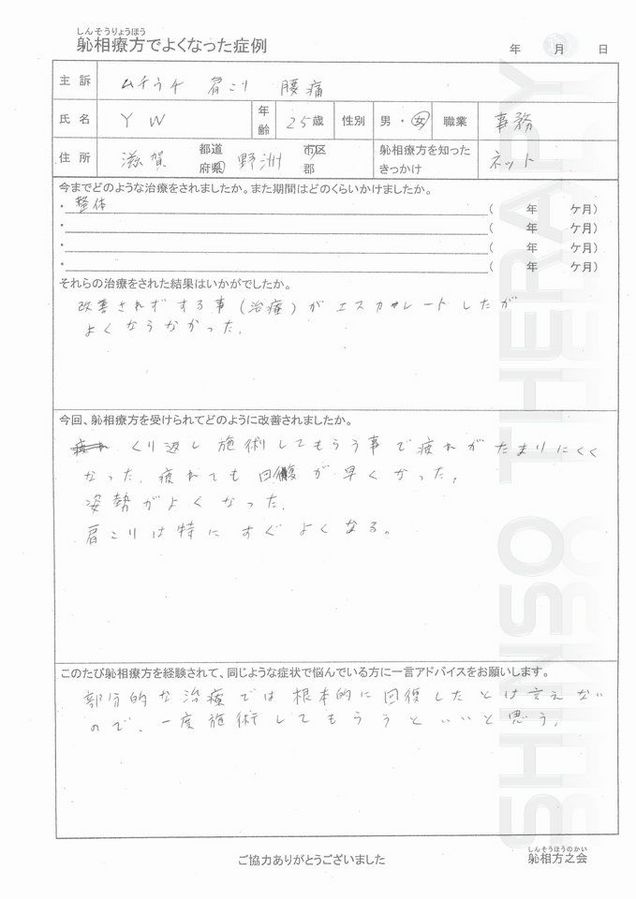 しんそうりょうほう
躰相療方でよくなった症例
年 月 日
主訴 ムチウチ 肩こり 腰痛
氏名 YW 年齢 25歳 性別 男・女 職業 事務
住所 滋賀 都道府県 野洲 市区郡 躰相療方を知ったきっかけ ネット
今までどのような治療をされましたか。また期間はどのくらいかけましたか。
・整体 ( 年 ケ月)
・ ( 年 ケ月)
・ ( 年 ケ月)
・ ( 年 ケ月)
それらの治療をされた結果はいかがでしたか。
改善されずする事(治療)がエスカレートしたが
よくならなかった。
今回、躰相療方を受けられてどのように改善されましたか。
くり返し施術してもらう事で疲れがたまりにくく
なった。疲れても回復が早くなった。
姿勢がよくなった。
肩こりは特にすぐよくなる。
このたび躰相療方を経験されて、同じような症状で悩んでいる方に一言アドバイスをお願いします。
部分的な治療では根本的に回復したとは言えない
ので、一度施術してもらうといいと思う。
ご協力ありがとうございました
しんそうほうのかい
躰相方之会
SHINSO THERAPY